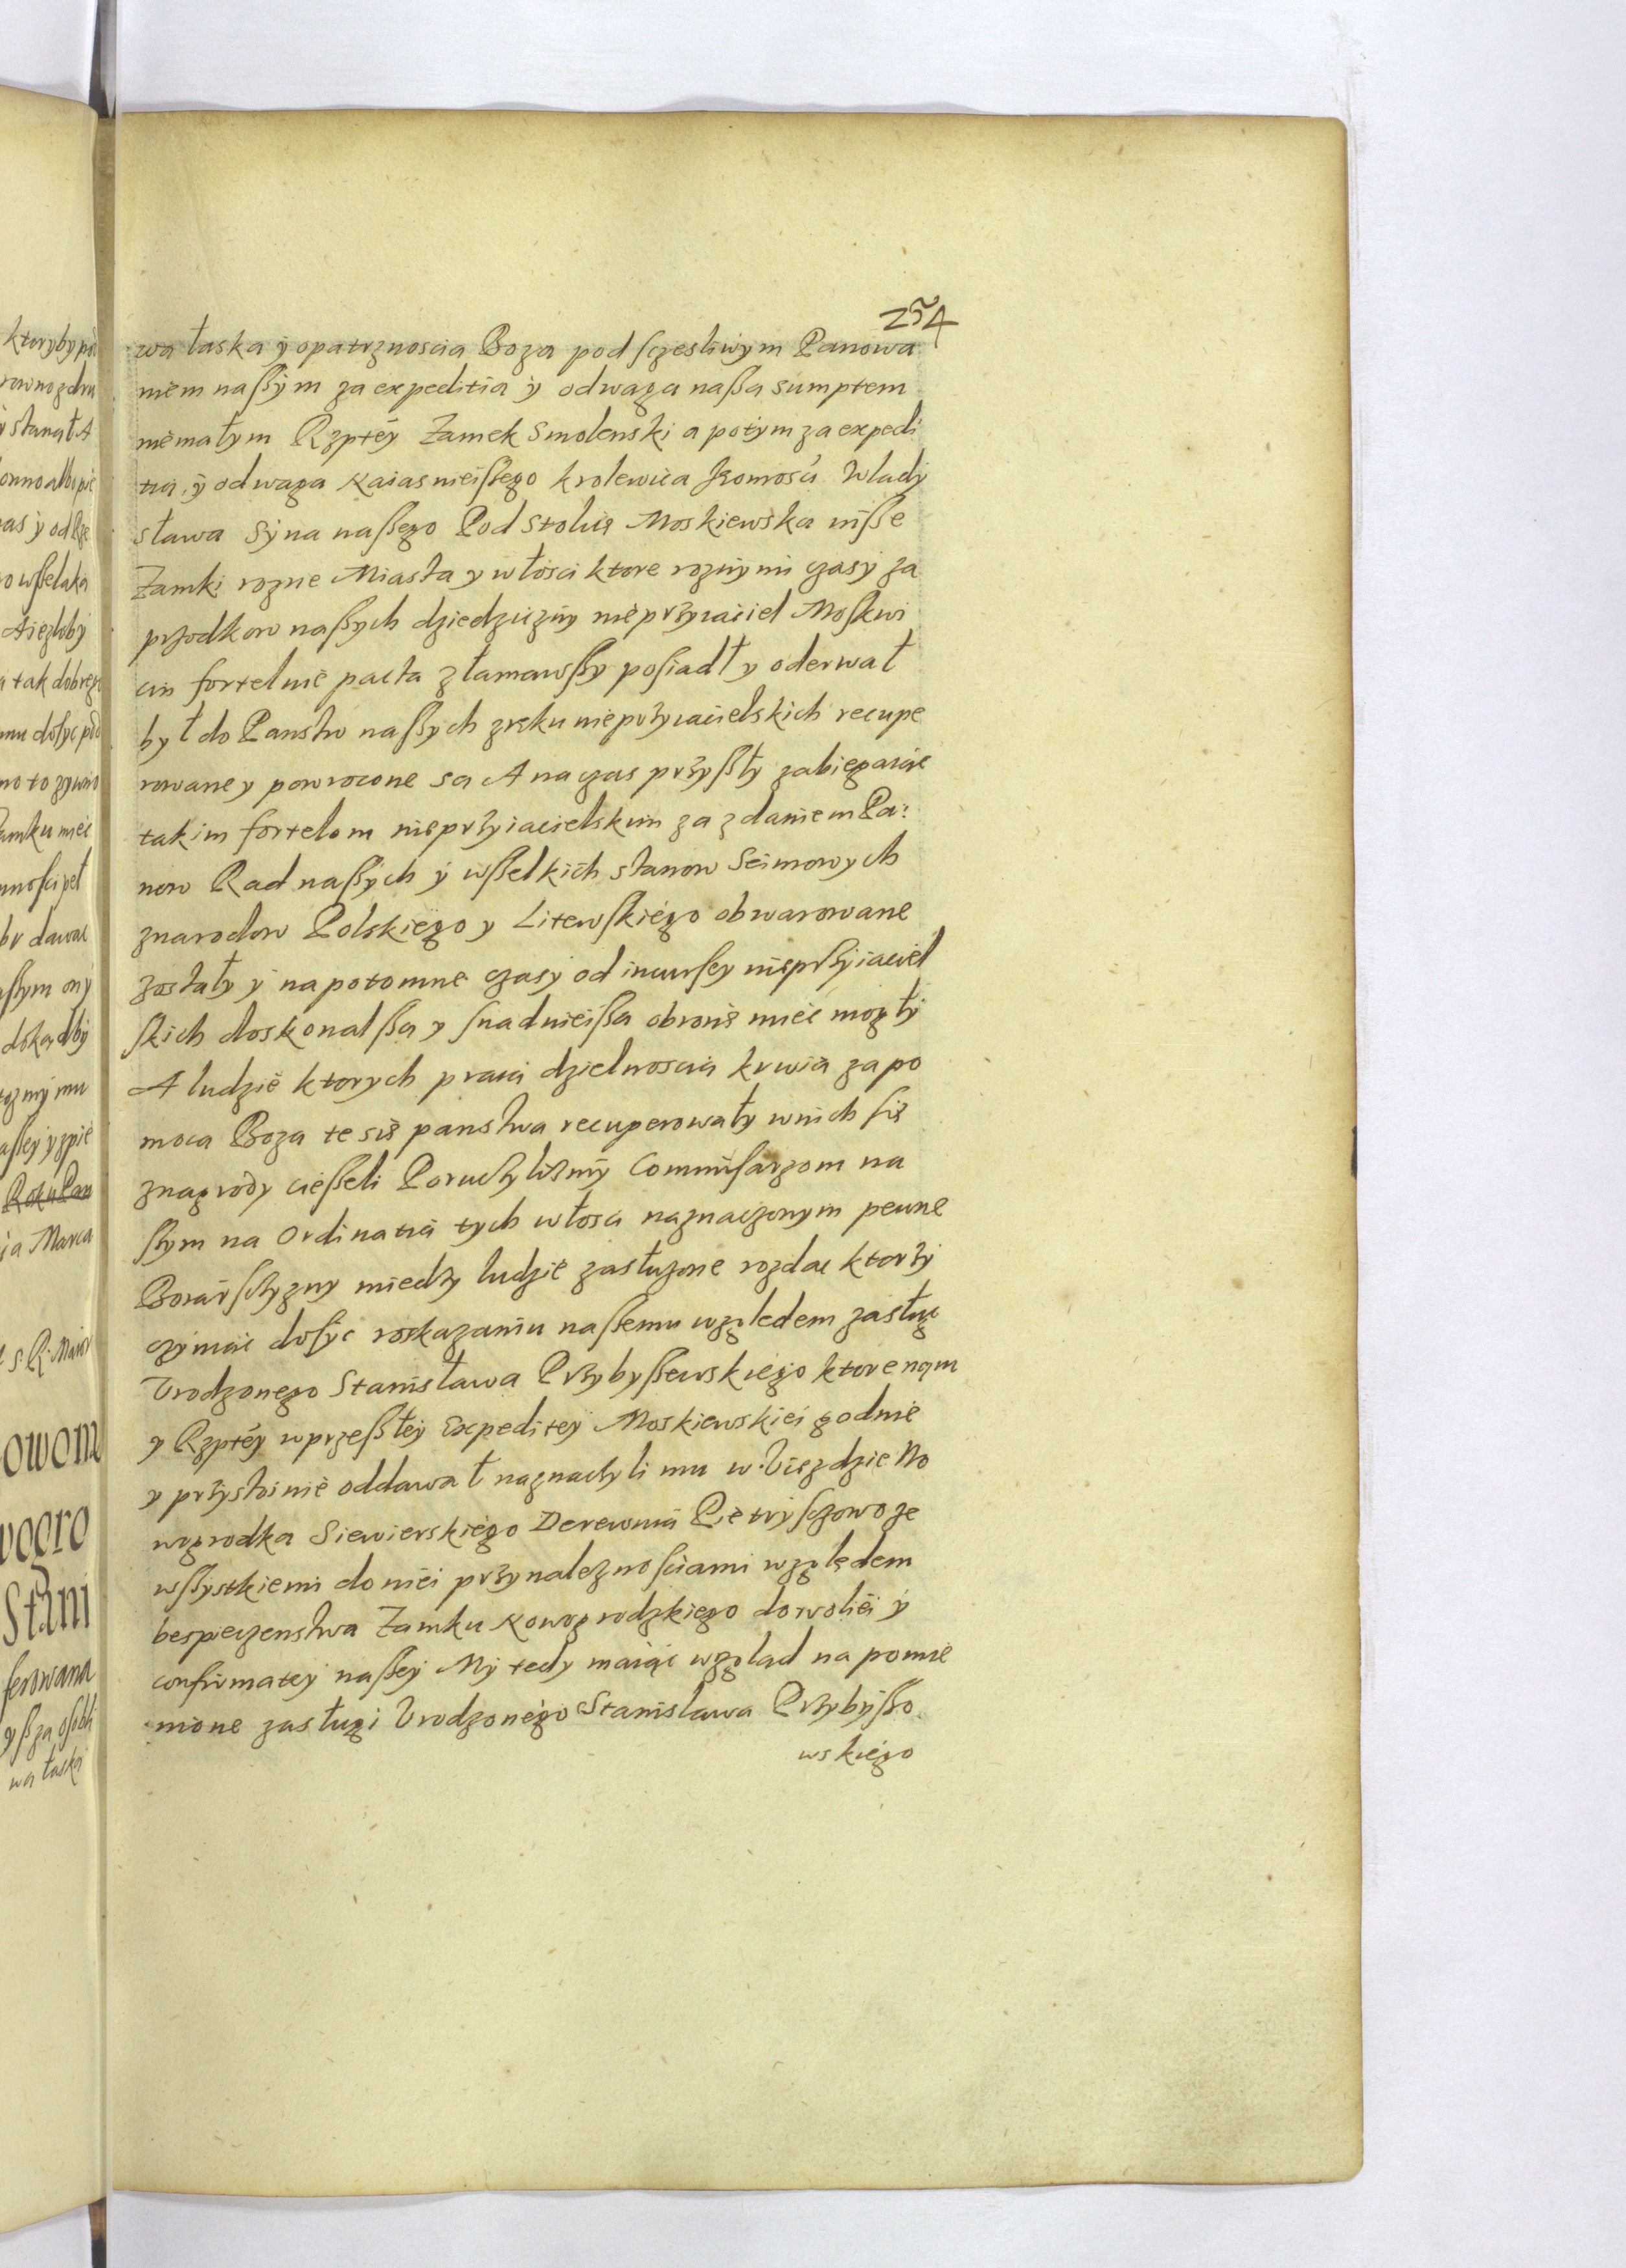 254
wa łaska y opatrznoscia Boza pod sczesliwym Panowa
niem naszym za expeditia y odwaga nasza sumptem
niemałym Rzptey Zamek Smolenski a potym za expedi
tia, y odwaga Naiasnieiszego krolewica Jeomosci Wlady
sława Syna naszego Pod Stolicę Moskiewska insze
Zamki rozne Miasta y włosci ktore roznymi czasy za
przodkow naszych dziedziczny nieprzyiaciel Moskwi
cin fortelnie pacta złamawszy posiadł y oderwał
był do Panstw naszych zręku nieprzyiacielskich recupe
rowane y powrocone sa A na czas przyszły zabiegaiąc
takim fortelom nieprzyiacielskim za zdaniem Pa:
now Rad naszych y wszelkich stanow Seimowych
znarodow Polskiego y Litewskiego obwarowane
zostały y napotomne czasy od incursey nieprzyiaciel
skich doskonalsza y snadnieisza obronę miec mogły
A ludzie ktorych praca dzielnoscia krwia zapo
moca Boza te się panstwa recuperowały wnich się
znagrody cieszeli Poruczylismy Commisarzom na
szym na Ordinatia tych włosci naznaczonym pewne
Boiarsczyzny miedzy ludzie zasłuzone rozdac ktorzy
czyniac dosyc roskazaniu naszemu względem zasług
Vrodzonego Stanisława Przybyszewskiego ktore nąm
y Rzptey wprzeszłey Expeditey Moskiewskiei godnie
y przystoinie oddawał naznaczyli mu w Viezdzie No
wogrodka Siewierskiego Derewnia Pietrysczowo ze
wszystkiemi do niei przynaleznosciami względem
bespieczenstwa Zamku Nowogrodzkiego do woliei y
confirmatey naszey My tedy maiąc wzgląd na pomie
nione zasługi Vrodzonego Stanislawa Przybyszo
wskiego